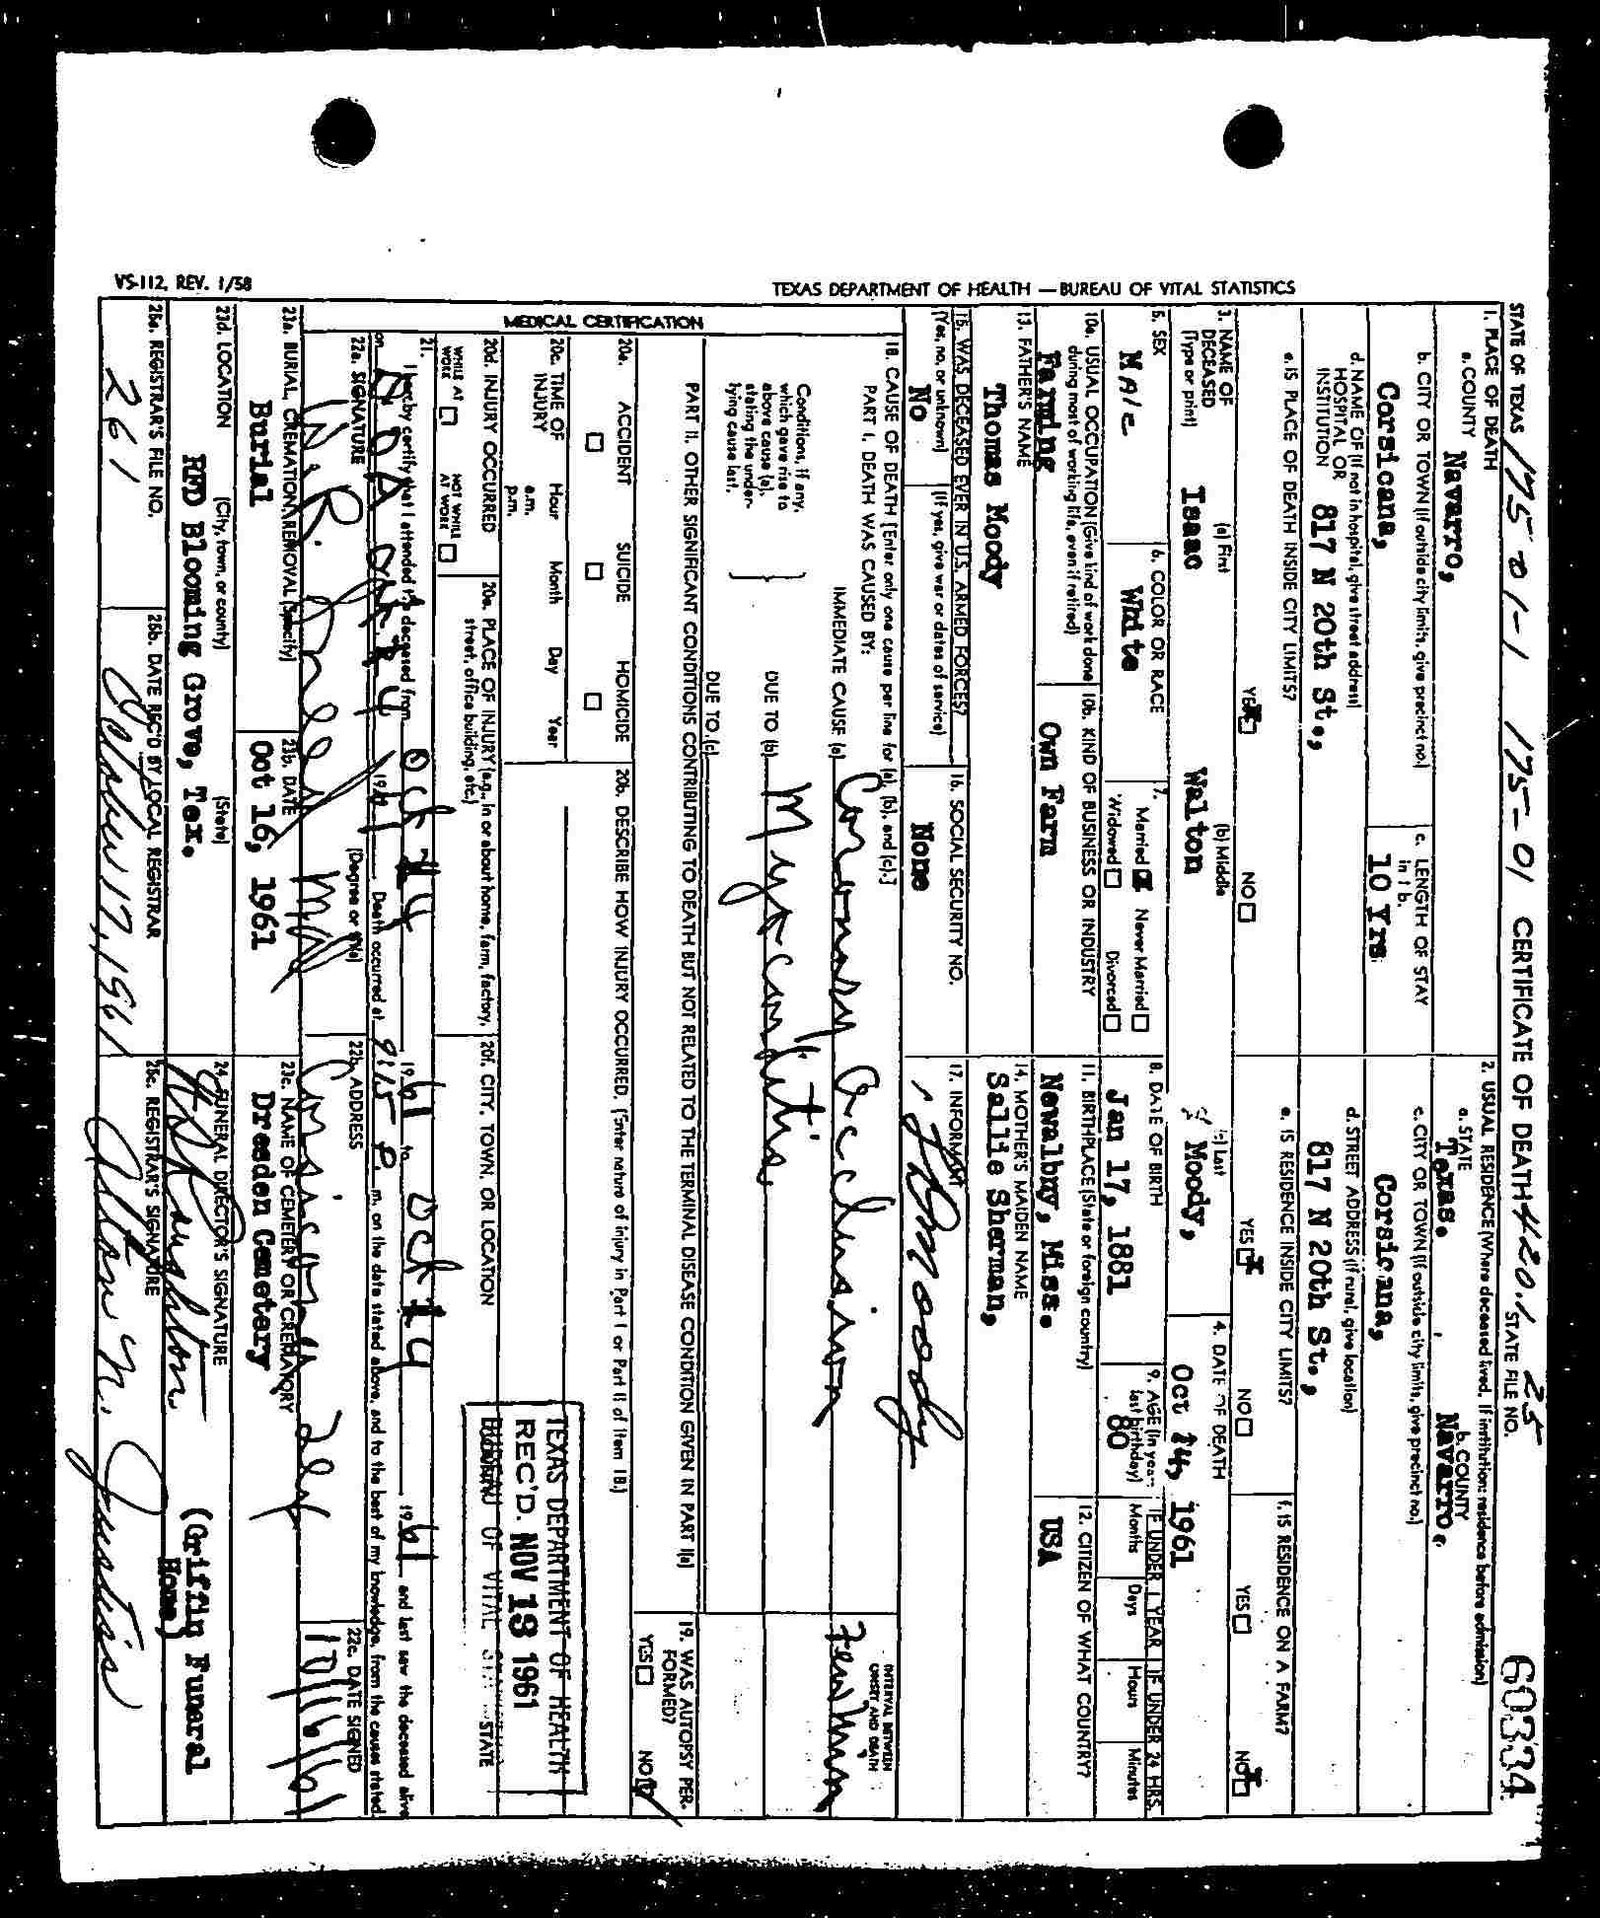 TEXAS DEPARTMENT OF HEALTH — BUREAU OF VITAL STATISTICS
VS-112, REV. 1/58
STATE OF TEXAS 175 01-1 175-01 CERTIFICATE OF DEATH 420.1 25 STATE FILE NO. 60334
1. PLACE OF DEATH
a. COUNTY Navarro,
2. USUAL RESIDENCE (Where deceased lived. If institution: residence before admission)
a. STATE Texas.
b. COUNTY Navarro.
b. CITY OR TOWN (If outside city limits, give precinct no.)
Corsicana,
c. LENGTH OF STAY in 1 b.
10 Yrs.
c. CITY OR TOWN (If outside city limits, give precinct no.)
Corsicana,
d. NAME OF (If not in hospital, give street address)
HOSPITAL OR
INSTITUTION 817 N 20th St.,
d. STREET ADDRESS (If rural, give location)
817 N 20th St.,
e. IS PLACE OF DEATH INSIDE CITY LIMITS?
YES X NO
e. IS RESIDENCE INSIDE CITY LIMITS?
YES X NO
f. IS RESIDENCE ON A FARM?
YES NO X
3. NAME OF DECEASED (Type or print)
(a) First Isaac
(b) Middle Walton
(c) Last Moody,
4. DATE OF DEATH
Oct 14, 1961
5. SEX
Male
6. COLOR OR RACE
White
7. Married X Never Married
Widowed Divorced
8. DATE OF BIRTH
Jan 17, 1881
9. AGE (In years last birthday)
80
IF UNDER 1 YEAR
Months Days
IF UNDER 24 HRS.
Hours Minutes
10a. USUAL OCCUPATION (Give kind of work done during most of working life, even if retired)
Farming
10b. KIND OF BUSINESS OR INDUSTRY
Own Farm
11. BIRTHPLACE (State or foreign country)
Newalbny, Miss.
12. CITIZEN OF WHAT COUNTRY?
USA
13. FATHER'S NAME
Thomas Moody
14. MOTHER'S MAIDEN NAME
Sallie Sherman,
15. WAS DECEASED EVER IN U.S. ARMED FORCES?
(Yes, no, or unknown) (If yes, give war or dates of service)
No
16. SOCIAL SECURITY NO.
None
17. INFORMANT
Moody
MEDICAL CERTIFICATION
18. CAUSE OF DEATH [Enter only one cause per line for (a), (b), and (c).]
PART I. DEATH WAS CAUSED BY:
IMMEDIATE CAUSE (a) Coronary Occlusion
INTERVAL BETWEEN ONSET AND DEATH
Few Min
Conditions, if any, which gave rise to above cause (a), stating the under-lying cause last.
DUE TO (b) Myocarditis
DUE TO (c)
PART II. OTHER SIGNIFICANT CONDITIONS CONTRIBUTING TO DEATH BUT NOT RELATED TO THE TERMINAL DISEASE CONDITION GIVEN IN PART I(a)
19. WAS AUTOPSY PER-FORMED?
YES NO
20a. ACCIDENT SUICIDE HOMICIDE
20b. DESCRIBE HOW INJURY OCCURRED. (Enter nature of injury in Part I or Part II of item 18.)
20c. TIME OF INJURY Hour Month Day Year
a.m.
p.m.
TEXAS DEPARTMENT OF HEALTH
REC'D. NOV 13 1961
BUREAU OF VITAL
20d. INJURY OCCURRED
WHILE AT WORK NOT WHILE AT WORK
20e. PLACE OF INJURY (e.g., in or about home, farm, factory, street, office building, etc.)
20f. CITY, TOWN, OR LOCATION
STATE
21. I hereby certify that I attended the deceased from Oct 14 1961 to Oct 14 1961 and last saw the deceased alive
on DOA Oct 14 1961 Death occurred at 9:15 P. m. on the date stated above, and to the best of my knowledge, from the causes stated.
22a. SIGNATURE (Degree or title)
MD
22b. ADDRESS
Corsicana Tex
22c. DATE SIGNED
10/16/61
23a. BURIAL, CREMATION, REMOVAL (Specify)
Burial
23b. DATE
Oct 16, 1961
23c. NAME OF CEMETERY OR CREMATORY
Dresden Cemetery
23d. LOCATION (City, town, or county) (State)
RFD Blooming Grove, Tex.
24. FUNERAL DIRECTOR'S SIGNATURE
(Griffin Funeral Home)
25a. REGISTRAR'S FILE NO.
261
25b. DATE REC'D BY LOCAL REGISTRAR
October 17, 1961
25c. REGISTRAR'S SIGNATURE
Alton N. Justis